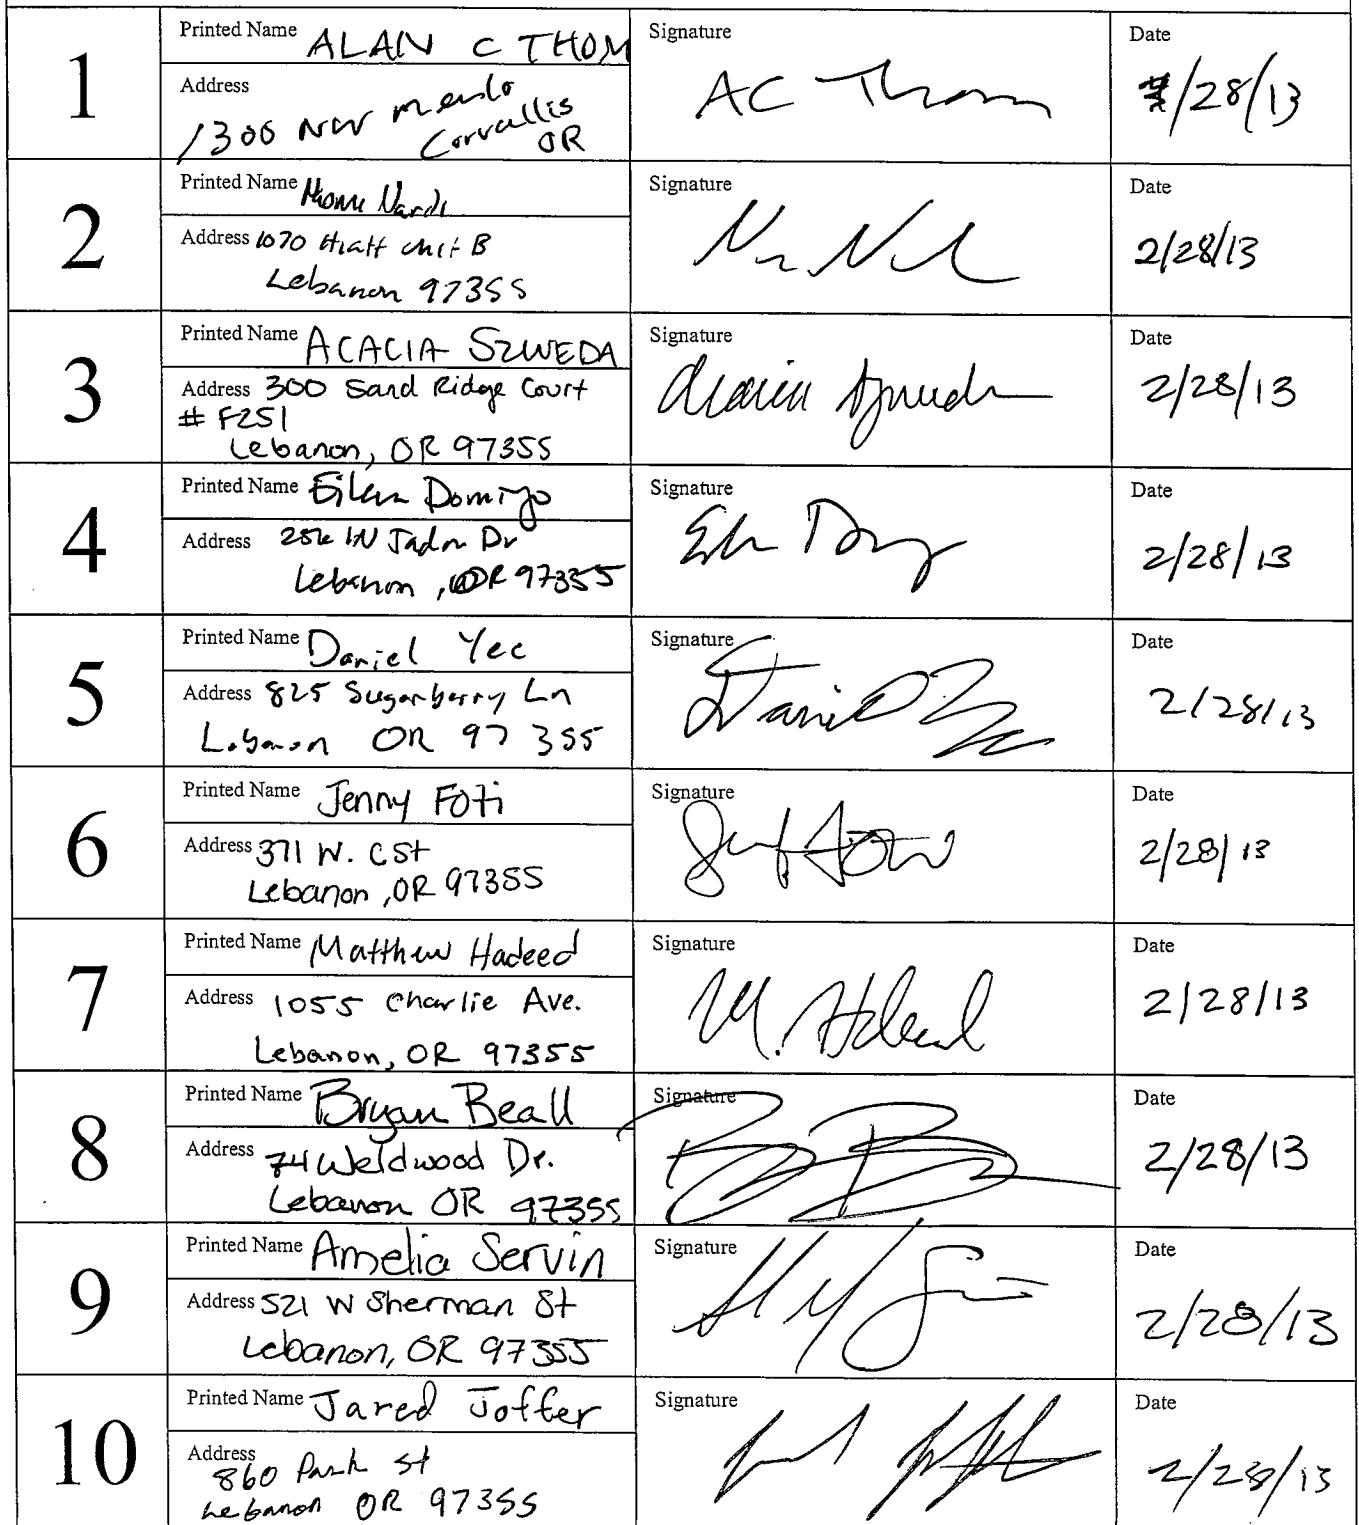 1
Printed Name ALAN C THOM
Address
1300 NW Menlo
Corvallis
OR
Signature
AC Thom
Date
/28/13
2
Printed Name Nardi
Address 1070 Hiatt Unit B
Lebanon 97355
Signature
Date
2/28/13
3
Printed Name ACACIA SZWEDA
Address 300 Sand Ridge Court
# F251
Lebanon, OR 97355
Signature
Acacia Szweda
Date
2/28/13
4
Printed Name Eileen Domingo
Address W Jadon Dr
Lebanon, OR 97355
Signature
Date
2/28/13
5
Printed Name Daniel Yee
Address 825 Sugarberry Ln
Lebanon OR 97355
Signature
Daniel
Date
2/28/13
6
Printed Name Jenny Foti
Address 371 W. C St
Lebanon, OR 97355
Signature
Date
2/28/13
7
Printed Name Matthew Hadeed
Address 1055 Charlie Ave.
Lebanon, OR 97355
Signature
M. Hadeed
Date
2/28/13
8
Printed Name Bryan Beall
Address 74 Weldwood Dr.
Lebanon OR 97355
Signature
Date
2/28/13
9
Printed Name Amelia Servin
Address 521 W Sherman St
Lebanon, OR 97355
Signature
Date
2/28/13
10
Printed Name Jared Joffer
Address
860 Park St
Lebanon OR 97355
Signature
Date
2/28/13